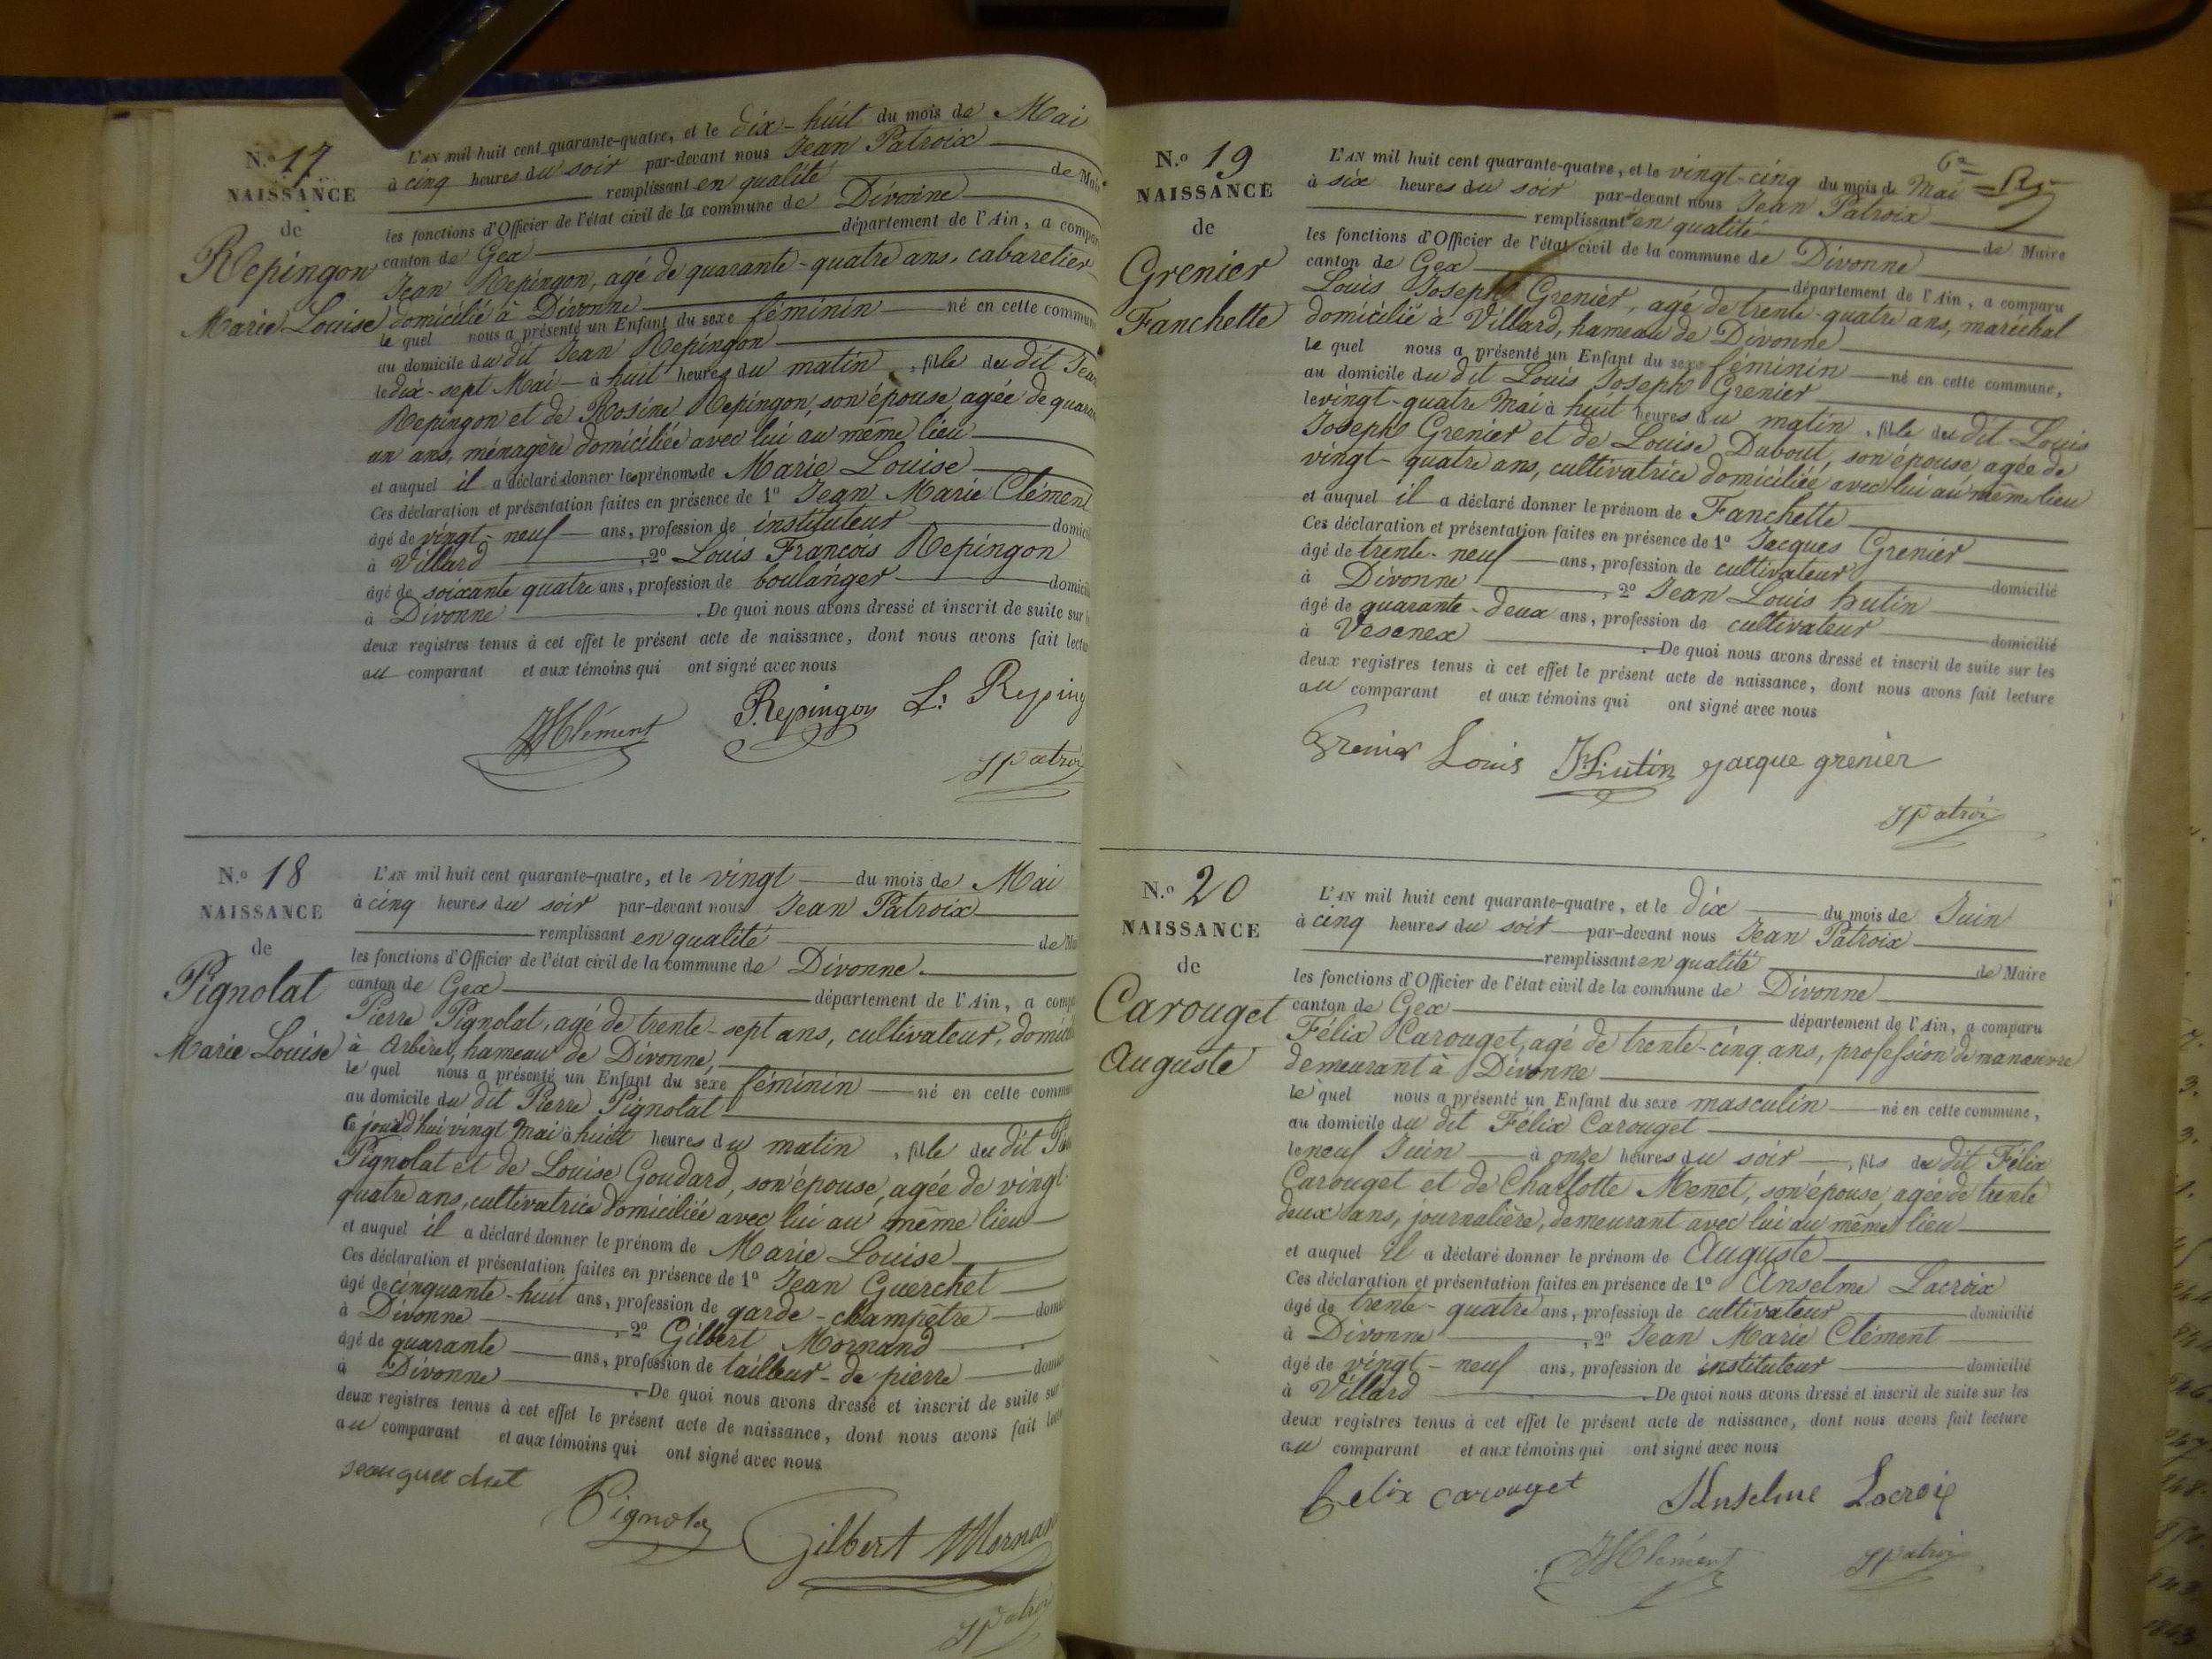 N.º 17
NAISSANCE
de
Repingon
Marie Louise
L'AN mil huit cent quarante-quatre, et le dix-huit du mois de Mai
à cinq heures du soir par-devant nous Jean Patroix
remplissant en qualité de Mai
les fonctions d'Officier de l'état civil de la commune de Divonne
canton de Gex département de l'Ain, a compar
Jean Repingon, agé de quarante-quatre ans, cabaretier
domicilié à Divonne
le quel nous a présenté un Enfant du sexe féminin né en cette commun
au domicile du dit Jean Repingon
le dix-sept Mai à huit heures du matin, fille du dit Jean
Repingon et de Rosine Repingon, son épouse agée de quaran
un ans, ménagère domiciliée avec lui au même lieu
et auquel il a déclaré donner les prénoms de Marie Louise
Ces déclaration et présentation faites en présence de 1º Jean Marie Clément
âgé de vingt-neuf ans, profession de instituteur domicil
à Villard, 2º Louis François Repingon
âgé de soixante quatre ans, profession de boulanger domicil
à Divonne. De quoi nous avons dressé et inscrit de suite sur
deux registres tenus à cet effet le présent acte de naissance, dont nous avons fait lectu
au comparant et aux témoins qui ont signé avec nous
JMClément Repingon L: Reping
JPatroix
N.º 18
NAISSANCE
de
Pignolat
Marie Louise
L'AN mil huit cent quarante-quatre, et le vingt du mois de Mai
à cinq heures du soir par-devant nous Jean Patroix
remplissant en qualité de Ma
les fonctions d'Officier de l'état civil de la commune de Divonne.
canton de Gex département de l'Ain, a compa
Pierre Pignolat, agé de trente-sept ans, cultivateur, domicil
à Arbère, hameau de Divonne,
le quel nous a présenté un Enfant du sexe féminin né en cette commu
au domicile du dit Pierre Pignolat
ce jourd'hui vingt Mai à huit heures du matin, fille du dit Pie
Pignolat et de Louise Goudard, son épouse, agée de vingt
quatre ans, cultivatrice domiciliée avec lui au même lieu
et auquel il a déclaré donner le prénom de Marie Louise
Ces déclaration et présentation faites en présence de 1º Jean Guerchet
âgé de cinquante-huit ans, profession de garde-champêtre domi
à Divonne, 2º Gilbert Mornand
âgé de quarante ans, profession de tailleur-de pierre domi
à Divonne. De quoi nous avons dressé et inscrit de suite sur
deux registres tenus à cet effet le présent acte de naissance, dont nous avons fait lectu
au comparant et aux témoins qui ont signé avec nous
jean guer chet
Pignolat Gilbert Mornan
JPatroix
N.º 19
NAISSANCE
de
Grenier
Fanchette
6e
L'AN mil huit cent quarante-quatre, et le vingt-cinq du mois de Mai
à six heures du soir par-devant nous Jean Patroix
remplissant en qualité de Maire
les fonctions d'Officier de l'état civil de la commune de Divonne
canton de Gex département de l'Ain, a comparu
Louis Joseph Grenier, agé de trente-quatre ans, maréchal
domicilié à Villard, hameau de Divonne
le quel nous a présenté un Enfant du sexe féminin né en cette commune,
au domicile du dit Louis Joseph Grenier
le vingt-quatre Mai à huit heures du matin, fille du dit Louis
Joseph Grenier et de Louise Dubout, son épouse agée de
vingt-quatre ans, cultivatrice domiciliée avec lui au même lieu
et auquel il a déclaré donner le prénom de Fanchette
Ces déclaration et présentation faites en présence de 1º Jacques Grenier
âgé de trente-neuf ans, profession de cultivateur domicilié
à Divonne, 2º Jean Louis hutin
âgé de quarante-deux ans, profession de cultivateur domicilié
à Vesenex. De quoi nous avons dressé et inscrit de suite sur les
deux registres tenus à cet effet le présent acte de naissance, dont nous avons fait lecture
au comparant et aux témoins qui ont signé avec nous
Grenier Louis JLhutin jacque grenier
JPatroix
N.º 20
NAISSANCE
de
Carouget
Auguste
L'AN mil huit cent quarante-quatre, et le dix du mois de Juin
à cinq heures du soir par-devant nous Jean Patroix
remplissant en qualité de Maire
les fonctions d'Officier de l'état civil de la commune de Divonne
canton de Gex département de l'Ain, a comparu
Félix Carouget, agé de trente-cinq ans, profession de manœuvre
demeurant à Divonne
le quel nous a présenté un Enfant du sexe masculin né en cette commune,
au domicile du dit Félix Carouget
le neuf Juin à onze heures du soir, fils du dit Félix
Carouget et de Charlotte Menet, son épouse, agée de trente
deux ans, journalière, demeurant avec lui au même lieu
et auquel il a déclaré donner le prénom de Auguste
Ces déclaration et présentation faites en présence de 1º Anselme Lacroix
âgé de trente-quatre ans, profession de cultivateur domicilié
à Divonne, 2º Jean Marie Clément
âgé de vingt-neuf ans, profession de instituteur domicilié
à Villard. De quoi nous avons dressé et inscrit de suite sur les
deux registres tenus à cet effet le présent acte de naissance, dont nous avons fait lecture
au comparant et aux témoins qui ont signé avec nous
felix carouget Anselme Lacroix
JMClément JPatroix